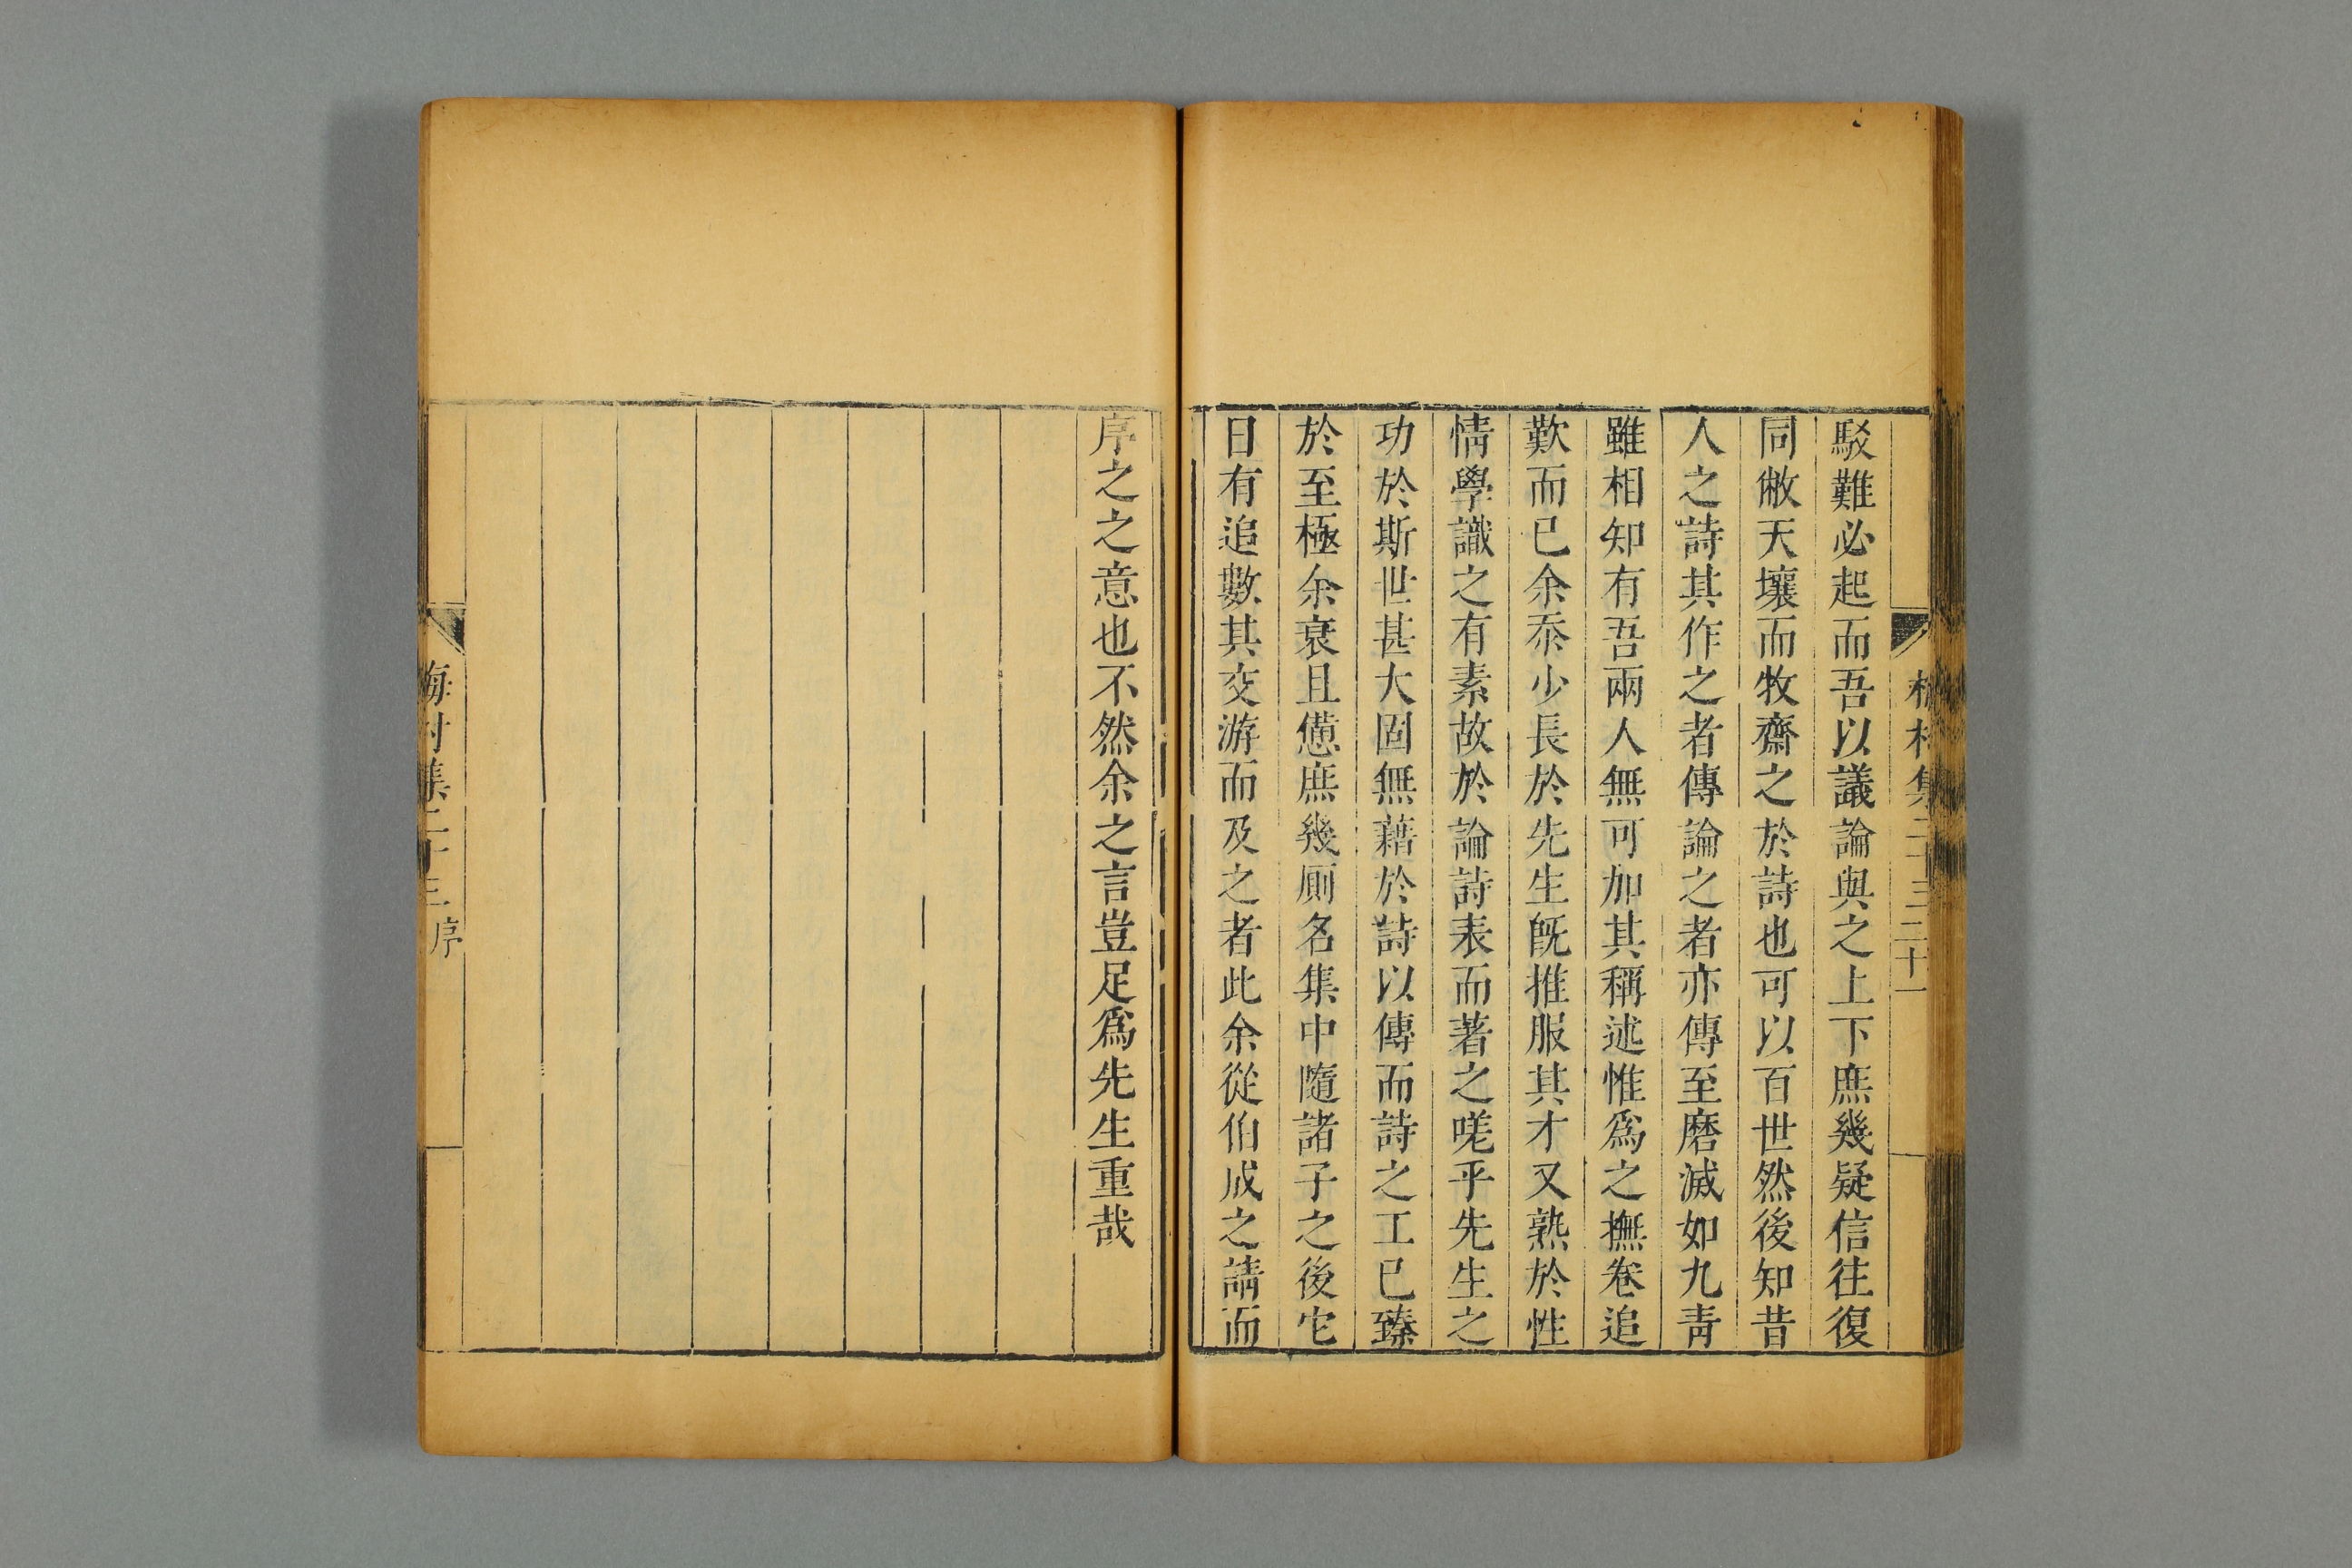 駁難必起而吾以議論與之上下庶幾疑信往復
同敝天壤而牧齋之於詩也可以百世然後知昔
人之詩其作之者傳論之者亦傳至磨滅如九靑
雖相知有吾兩人無可加其稱述惟爲之撫卷追
歎而已余忝少長於先生旣推服其才又熟於性
情學識之有素故於論詩表而著之嗟乎先生之
功於斯世甚大固無藉於詩以傳而詩之工已臻
於至極余衰且憊庶幾厠名集中隨諸子之後它
日有追數其交游而及之者此余從伯成之請而
序之之意也不然余之言豈足爲先生重哉
梅村集二十三序